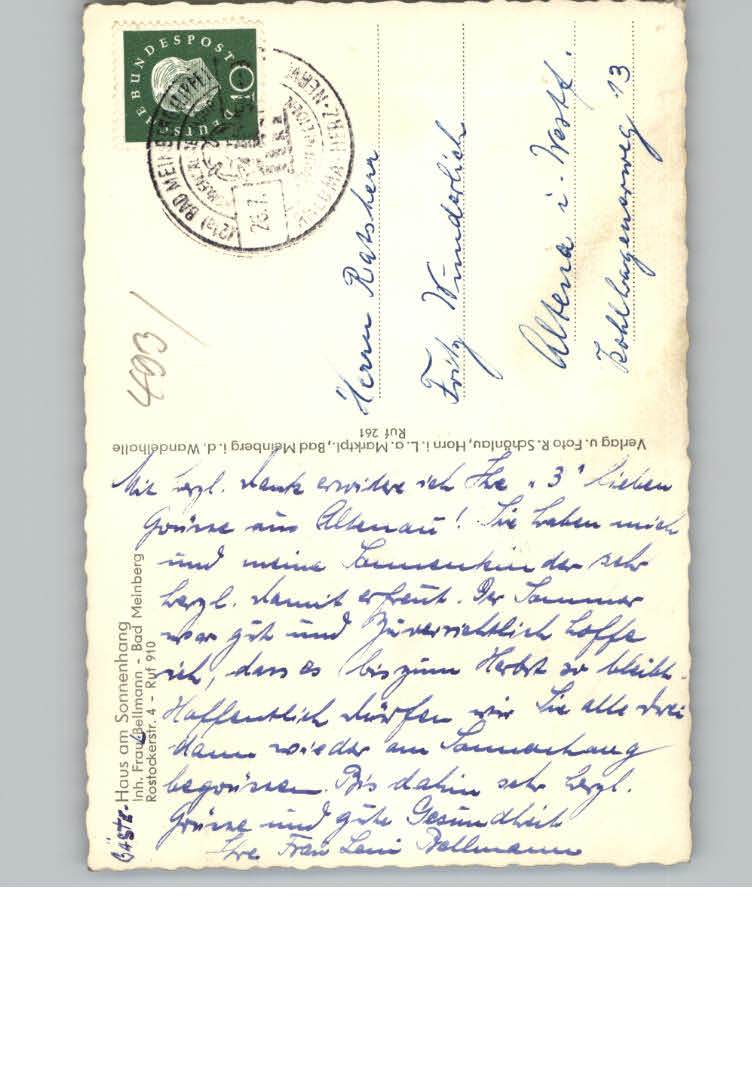 DEUTSCHE BUNDESPOST
10
(21a) BAD MEINBERG
HERZ
28.7.
493/
Herrn Ratsherr
Fritz Wunderlich
Altena i. Westf.
Kohlhagenerweg 13
Verlag u. Foto R. Schönlau, Horn i. L. a. Marktpl., Bad Meinberg i. d. Wandelhalle
Ruf 261
GÄSTE-Haus am Sonnenhang
Inh. Frau L. Bellmann - Bad Meinberg
Rostockerstr. 4 - Ruf 910
Mit herzl. Dank erwidere ich Ihre "3" lieben
Grüsse aus Altenau! Sie haben mich
und meine Sonnenkinder sehr
herzl. damit erfreut. Der Sommer
war gut und zuversichtlich hoffe
ich, dass es bis zum Herbst so bleibt.
Hoffentlich dürfen wir Sie alle drei
dann wieder am Sonnenhang
begrüssen. Bis dahin sehr herzl.
Grüsse und gute Gesundheit
Ihre Frau Leni Bellmann